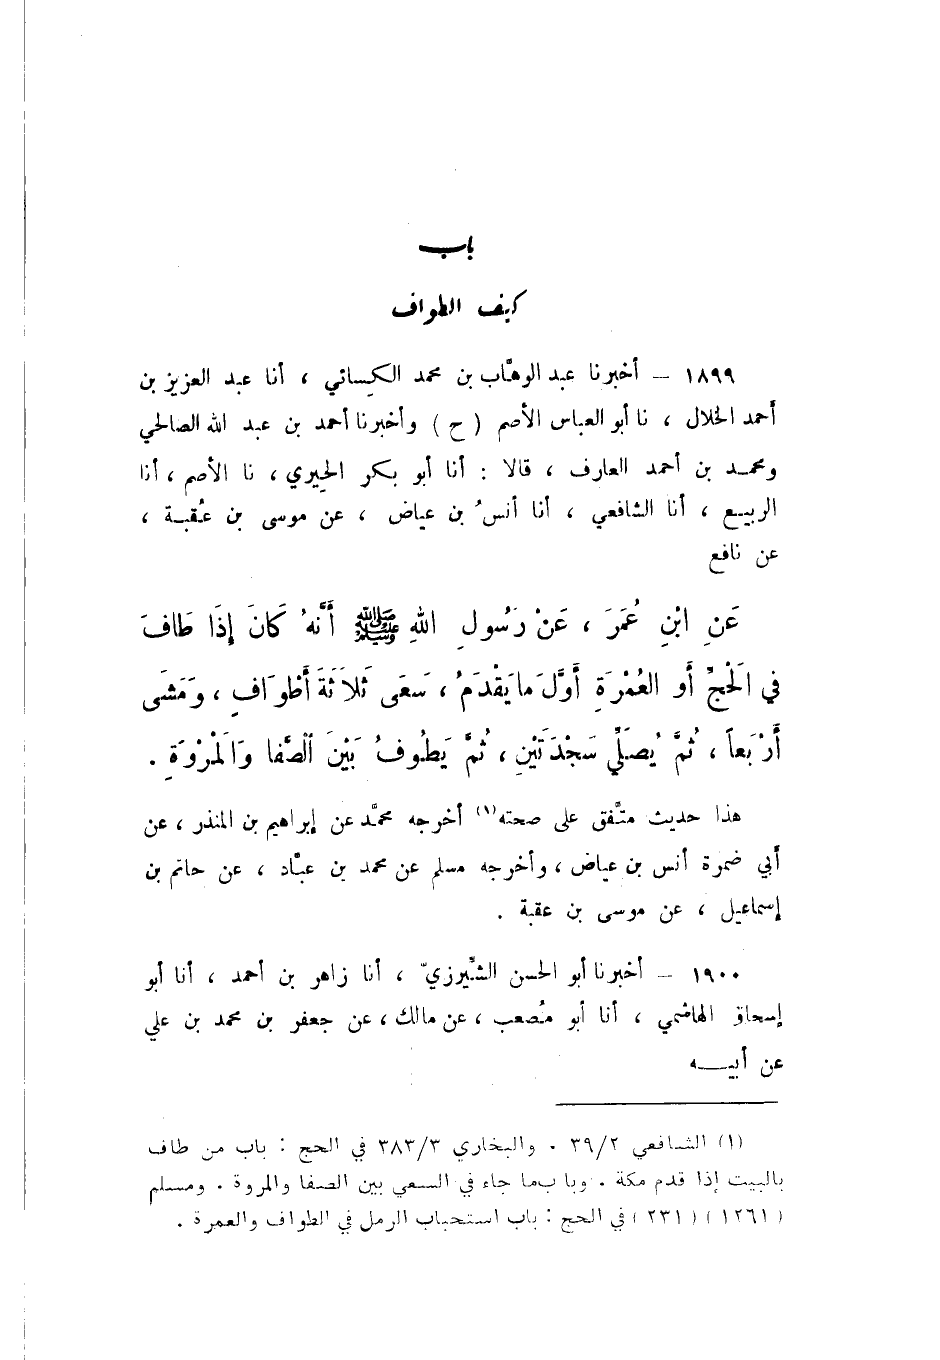 باب
كيف الطواف
١٨٩٩ – أخبرنا عبد الوهَّاب بن محمد الكِسائي ، أنا عبد العزيز بن
أحمد الخلال ، نا أبو العباس الأصم ( ح ) وأخبرنا أحمد بن عبد الله الصالحي
ومحمد بن أحمد العارف ، قالا : أنا أبو بكر الحِيري ، نا الأصم ، أنا
الربيع ، أنا الشافعي ، أنا أنسُ بن عياض ، عن موسى بن عُقبة ،
عن نافع
عَنِ ابْنِ عُمَرَ ، عَنْ رَسُولِ اللهِ ﷺ أَنَّهُ كَانَ إِذَا طَافَ
فِي الْحَجِّ أَو العُمْرَةِ أَوَّلَ مَا يَقْدَمُ ، سَعَى ثَلَاثَةَ أَطْوَافٍ ، وَمَشَى
أَرْبَعاً ، ثُمَّ يُصَلِّي سَجْدَتَيْنِ ، ثُمَّ يَطُوفُ بَيْنَ الصَّفا وَالْمَرْوَةِ .
هذا حديث متَّفق على صحته(١) أخرجه محمَّد عن إبراهيم بن المنذر ، عن
أبي ضمرة أنس بن عياض ، وأخرجه مسلم عن محمد بن عبَّاد ، عن حاتم بن
إسماعيل ، عن موسى بن عقبة .
١٩٠٠ – أخبرنا أبو الحسن الشِّيرزيّ ، أنا زاهر بن أحمد ، أنا أبو
إسحاق الهاشمي ، أنا أبو مُصعب ، عن مالك ، عن جعفر بن محمد بن علي
عن أبيه
(١) الشافعي ٣٩/٢ . والبخاري ٣٨٣/٣ في الحج : باب من طاف
بالبيت إذا قدم مكة . وباب ما جاء في السعي بين الصفا والمروة . ومسلم
( ١٢٦١ ) ( ٢٣١ ) في الحج : باب استحباب الرمل في الطواف والعمرة .